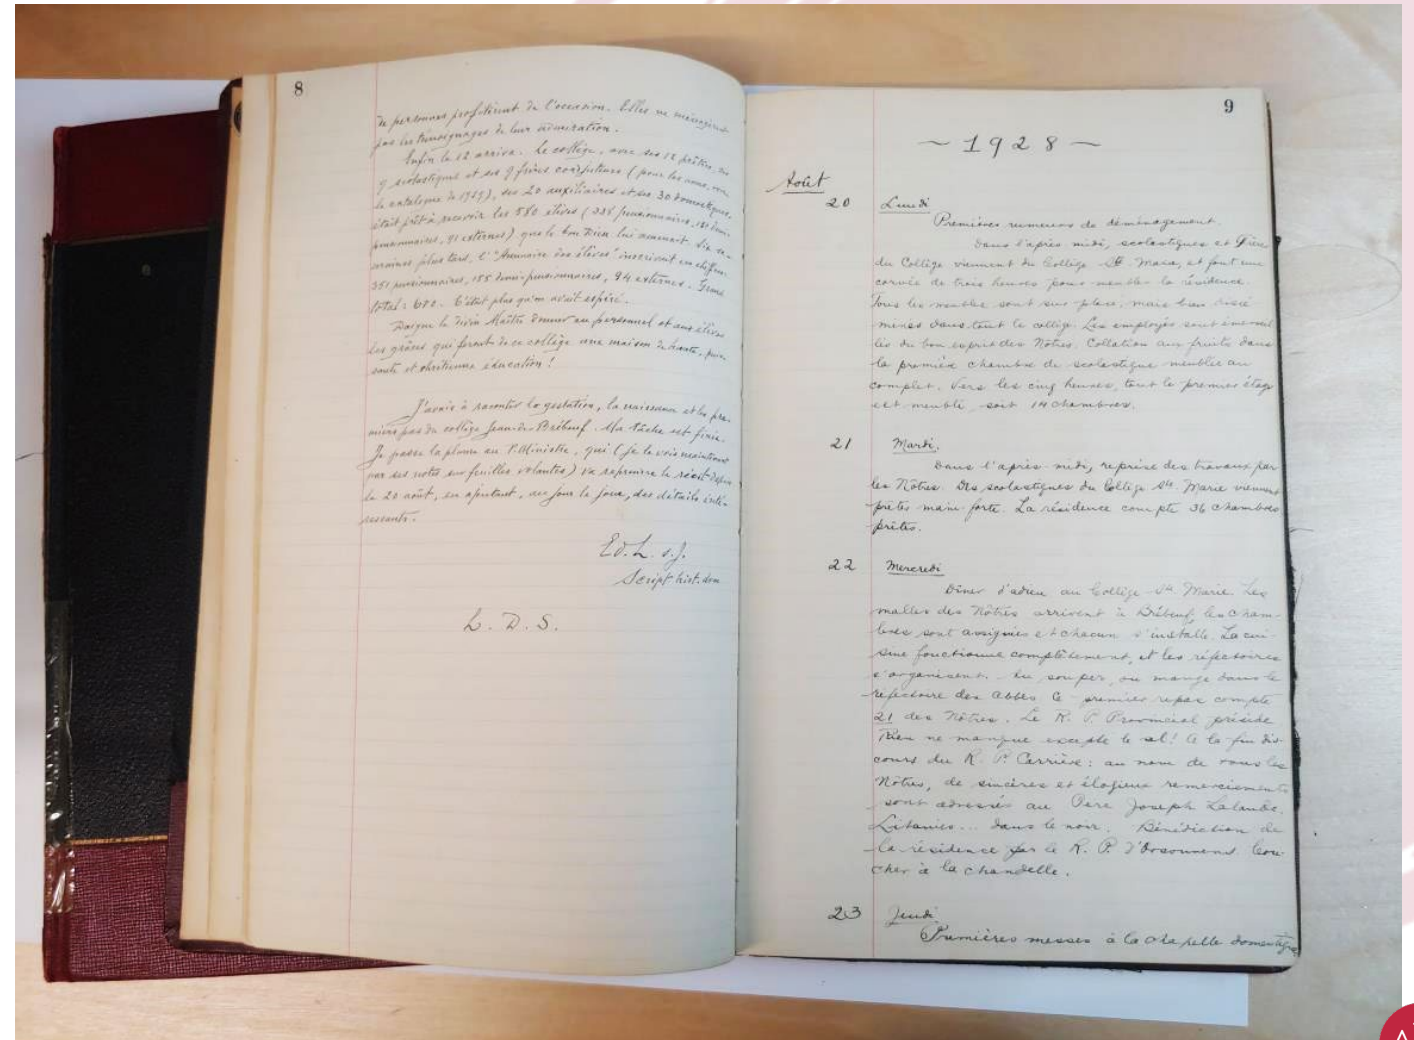 8
de personnes profitèrent de l'occasion. Elles ne ménagèrent
pas les témoignages de leur admiration.
Enfin le 12 arriva. Le collège, avec ses 12 prêtres, ses
9 scolastiques et ses 9 frères coadjuteurs (pour les noms, voir
le catalogue de 1929), ses 20 auxiliaires et ses 30 domestiques,
était prêt à recevoir les 580 élèves (335 pensionnaires, demi-
pensionnaires, 91 externes) que le bon Dieu lui amenait. Six se-
maines plus tard, l'"Annuaire des élèves" inscrivait en chiffres
351 pensionnaires, 155 demi-pensionnaires, 94 externes. Grand
total: C'était plus qu'on avait espéré.
Daigne le Divin Maître donner au personnel et aux élèves
les grâces qui feront de ce collège une maison de haute,
et chrétienne éducation!
J'avais à raconter la gestation, la naissance et les pre-
miers pas du collège Jean-de-Brébeuf. Ma tâche est finie.
Je passe la plume au P. Ministre, qui (je le vois maintenant
par ses notes sur feuilles volantes) va reprendre le récit depuis
le 20 août, en ajoutant, au jour le jour, des détails inté-
ressants.
Ed. L. s.j.
Script. hist. dom
L. D. S.
9
~ 1928 ~
Août
20 Lundi
Premières rumeurs de déménagement.
Dans l'après-midi, scolastiques et Frères
du Collège viennent du Collège Ste Marie, et font une
corvée de trois heures pour meubler la résidence.
Tous les meubles sont sur place, mais bien dissé
minés dans tout le collège. Les employés sont émerveil
lés du bon esprit des Nôtres. Collation aux fruits dans
la première chambre de scolastique meublée au
complet. Vers les cinq heures, tout le premier étage
est meublé, soit 14 chambres.
21 Mardi.
Dans l'après-midi, reprise des travaux par
les Nôtres. Des scolastiques du Collège Ste. Marie viennent
prêter main forte. La résidence compte 36 chambres
prêtes.
22 Mercredi
Dîner d'adieu au Collège Ste Marie. Les
malles des Nôtres arrivent à Brébeuf, les cham-
bres sont assignées et chacun s'installe. La cui-
sine fonctionne complètement, et les réfectoires
s'organisent. Au souper, on mange dans le
réfectoire des Abbés. Ce premier repas compte
21 des Nôtres. Le R. P. Provincial préside
Rien ne manque excepté le sel! A la fin dis-
cours du R. P. Carrière: au nom de tous les
Nôtres, de sincères et élogieux remerciements
sont adressés au Père Joseph Lalande.
Litanies... dans le noir. Bénédiction de
la résidence par le R. P. d'Orsonnens. Cou-
cher à la chandelle.
23 Jeudi
Premières messes à la chapelle domestique